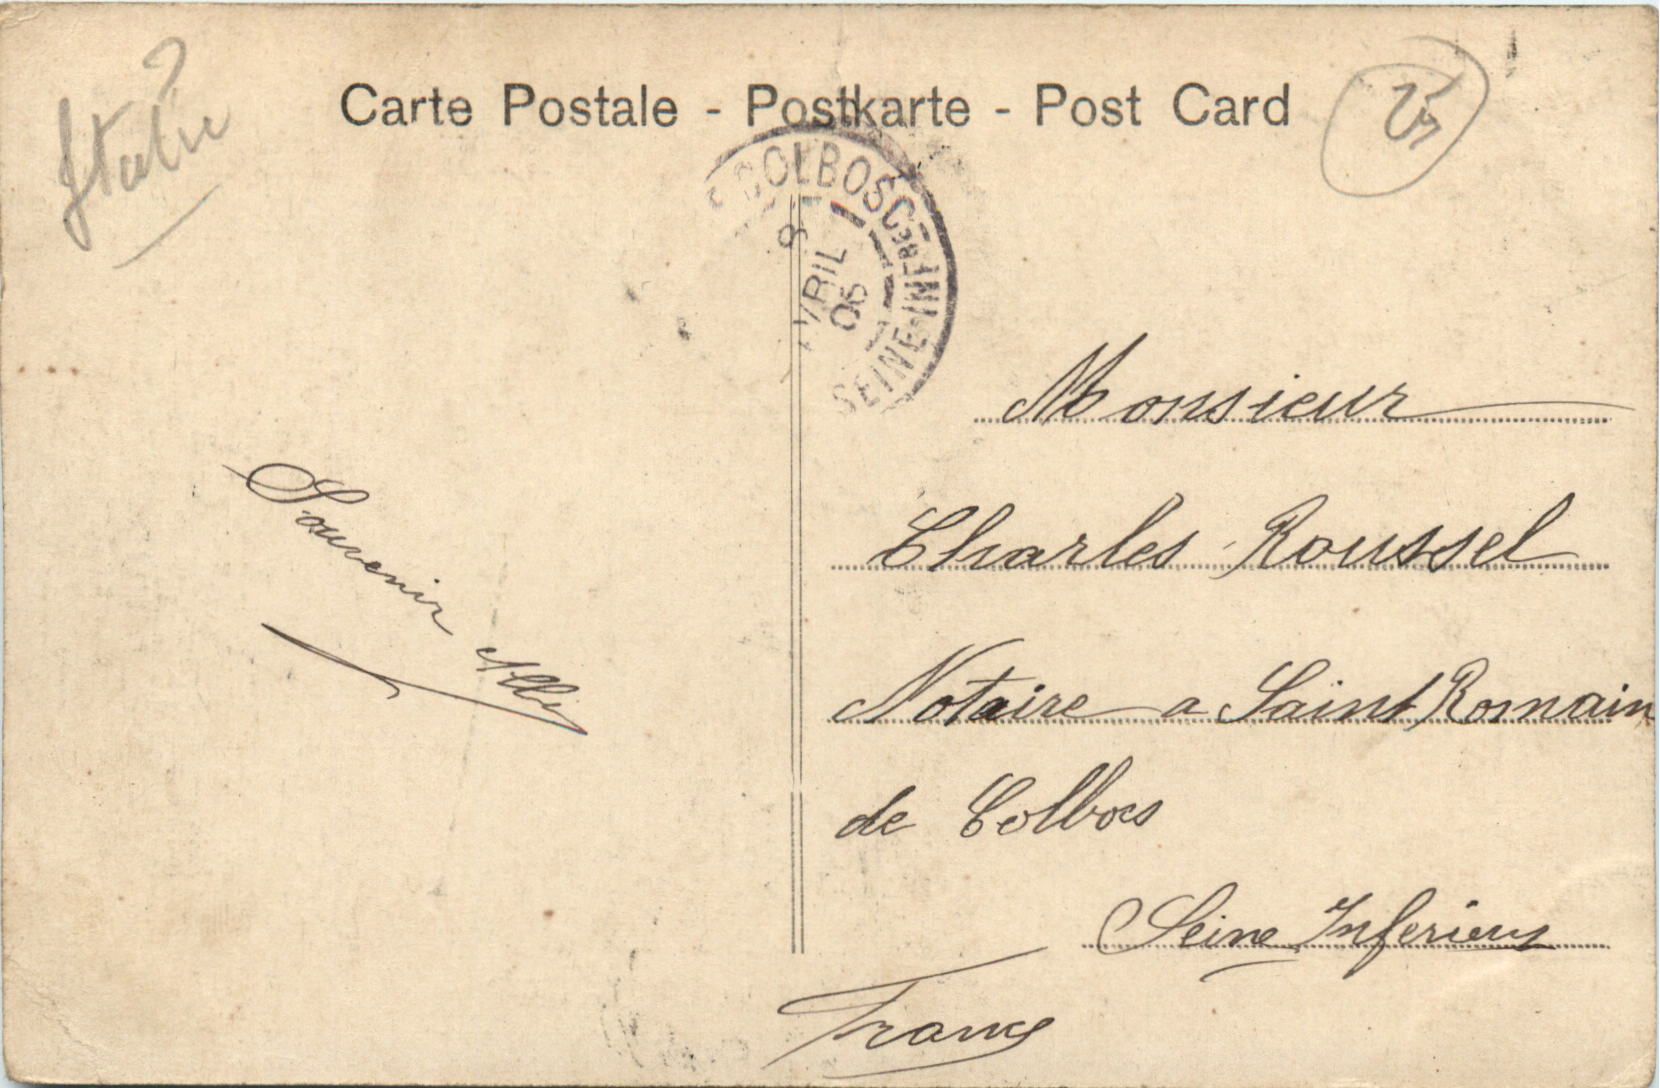 Carte Postale - Postkarte - Post Card
Italie
25
COLBOSC
SEINE-INFRE
8
AVRIL
06
Souvenir
Monsieur
Charles Roussel
Notaire a Saint Romain
de Colbocs
Seine Inferieur
France